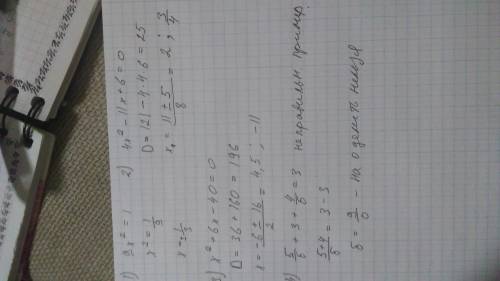 1) 9x² = 1
x² = 1/9
x = 1/3
2) 4x² - 11x + 6 = 0
D = 121 - 4·4·6 = 25
x₁ = (11 ± 5)/8 = 2 ; 3/4
3) x² + 6x - 40 = 0
D = 36 + 160 = 196
x = (-6 ± 16)/2 = 4,5 ; -11
5/б + 3 + 4/б = 3 неправильн пример.
(5+4)/б = 3 - 3
б = 9/0 - на 0 делить нельзя